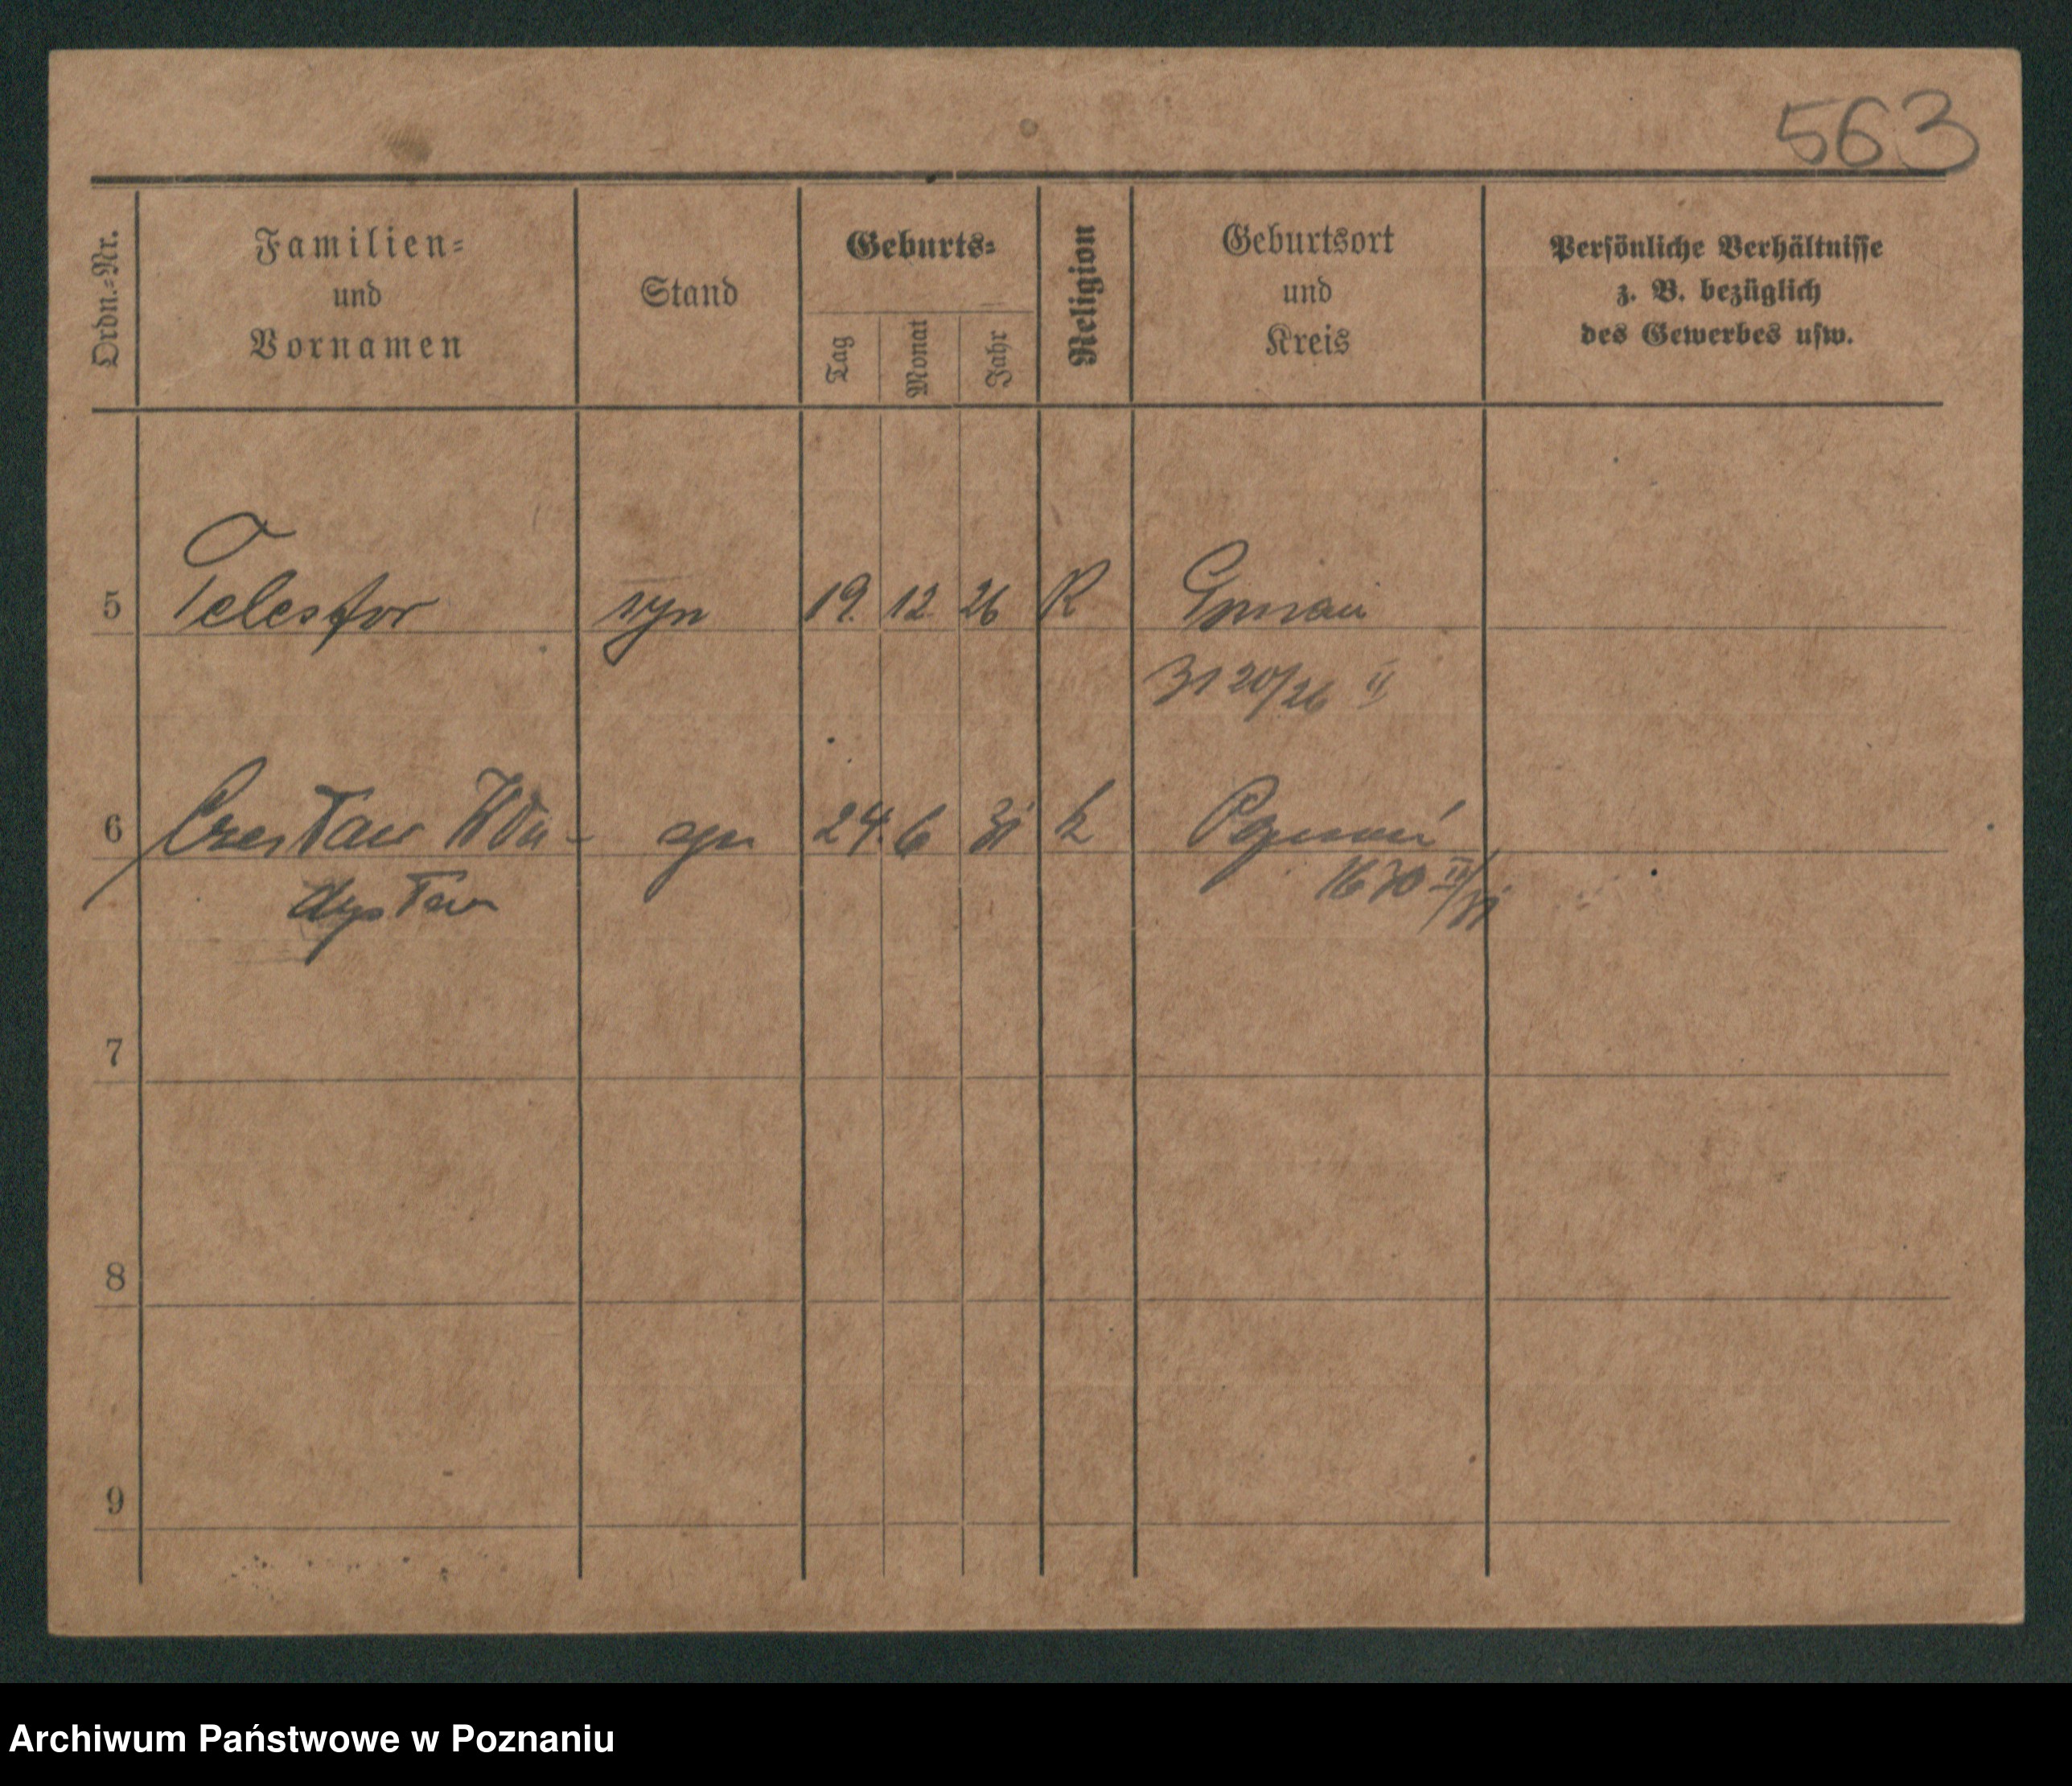 563
Ordn.-Nr.
Familien-
und
Vornamen
Stand
Geburts-
Tag
Monat
Jahr
Religion
Geburtsort
und
Kreis
Persönliche Verhältnisse
z. B. bezüglich
des Gewerbes usw.
5 Telesfor syn 19. 12 26 R
3120/26 II
6 Czesław Wła- syn 24. 6 31 k Poznań
dysław 1670 II/31
7
8
9
Archiwum Państwowe w Poznaniu